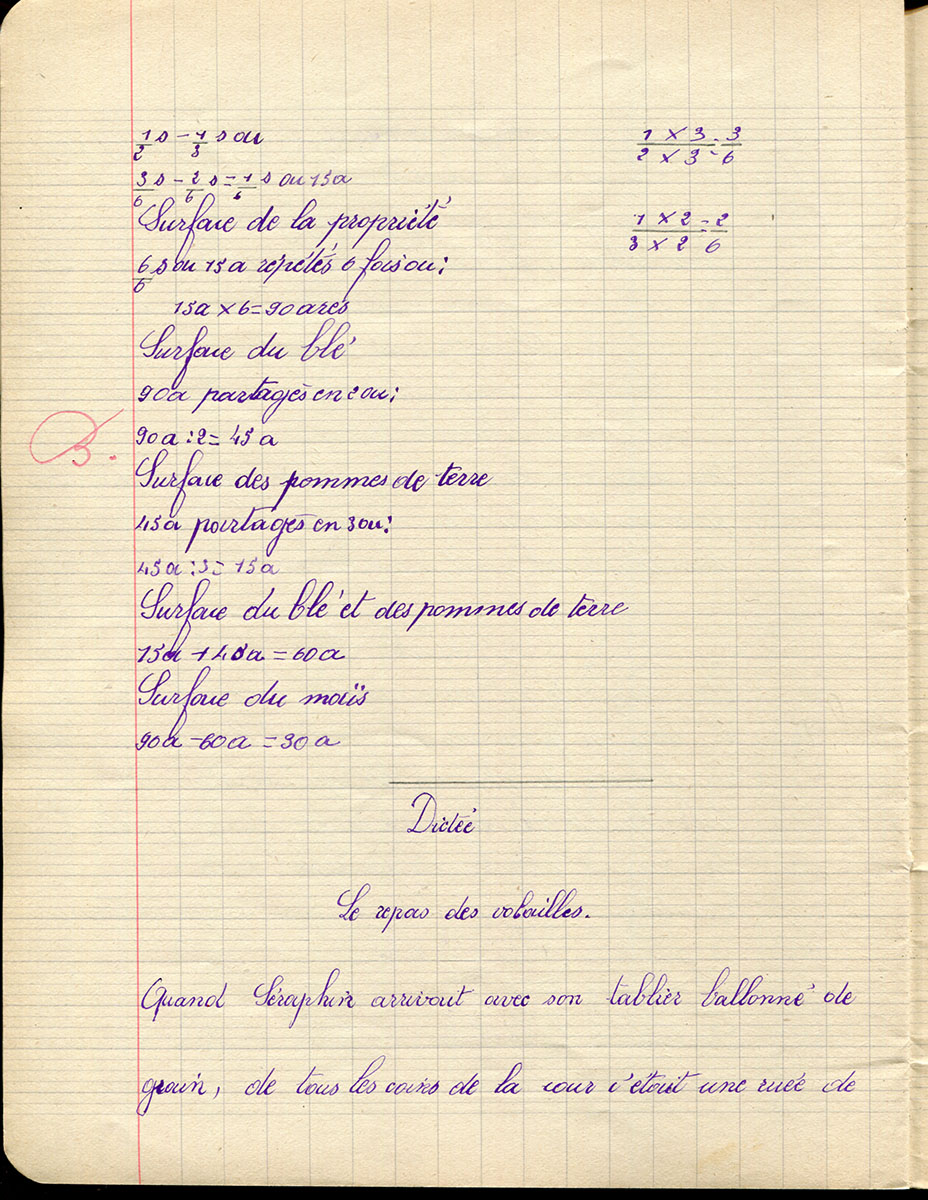 1/2 s - 1/3 s ou
1 × 3 / 2 × 3 = 3/6
3/6 s - 2/6 s = 1/6 s ou 15a
Surface de la propriété
1 × 2 / 3 × 2 = 2/6
6/6 s ou 15a répétés 6 fois ou :
15a × 6 = 90 ares
Surface du blé
90a partagés en 2 ou :
B.
90a : 2 = 45a
Surface des pommes de terre
45a partagés en 3 ou :
45a : 3 = 15a
Surface du blé et des pommes de terre
15a + 45a = 60a
Surface du maïs
90a - 60a = 30a
Dictée
Le repas des volailles.
Quand Séraphin arrivait avec son tablier ballonné de
grain, de tous les coins de la cour c'était une ruée de